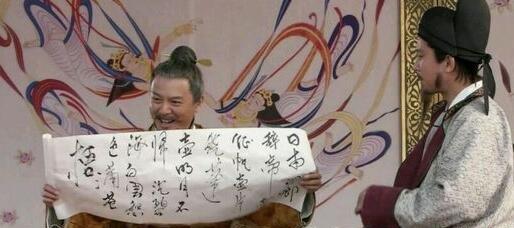 日本晁卿
辭帝都
征帆壹片
繞蓬
壺明月不
歸沈碧
海白雲愁
色滿蒼
梧